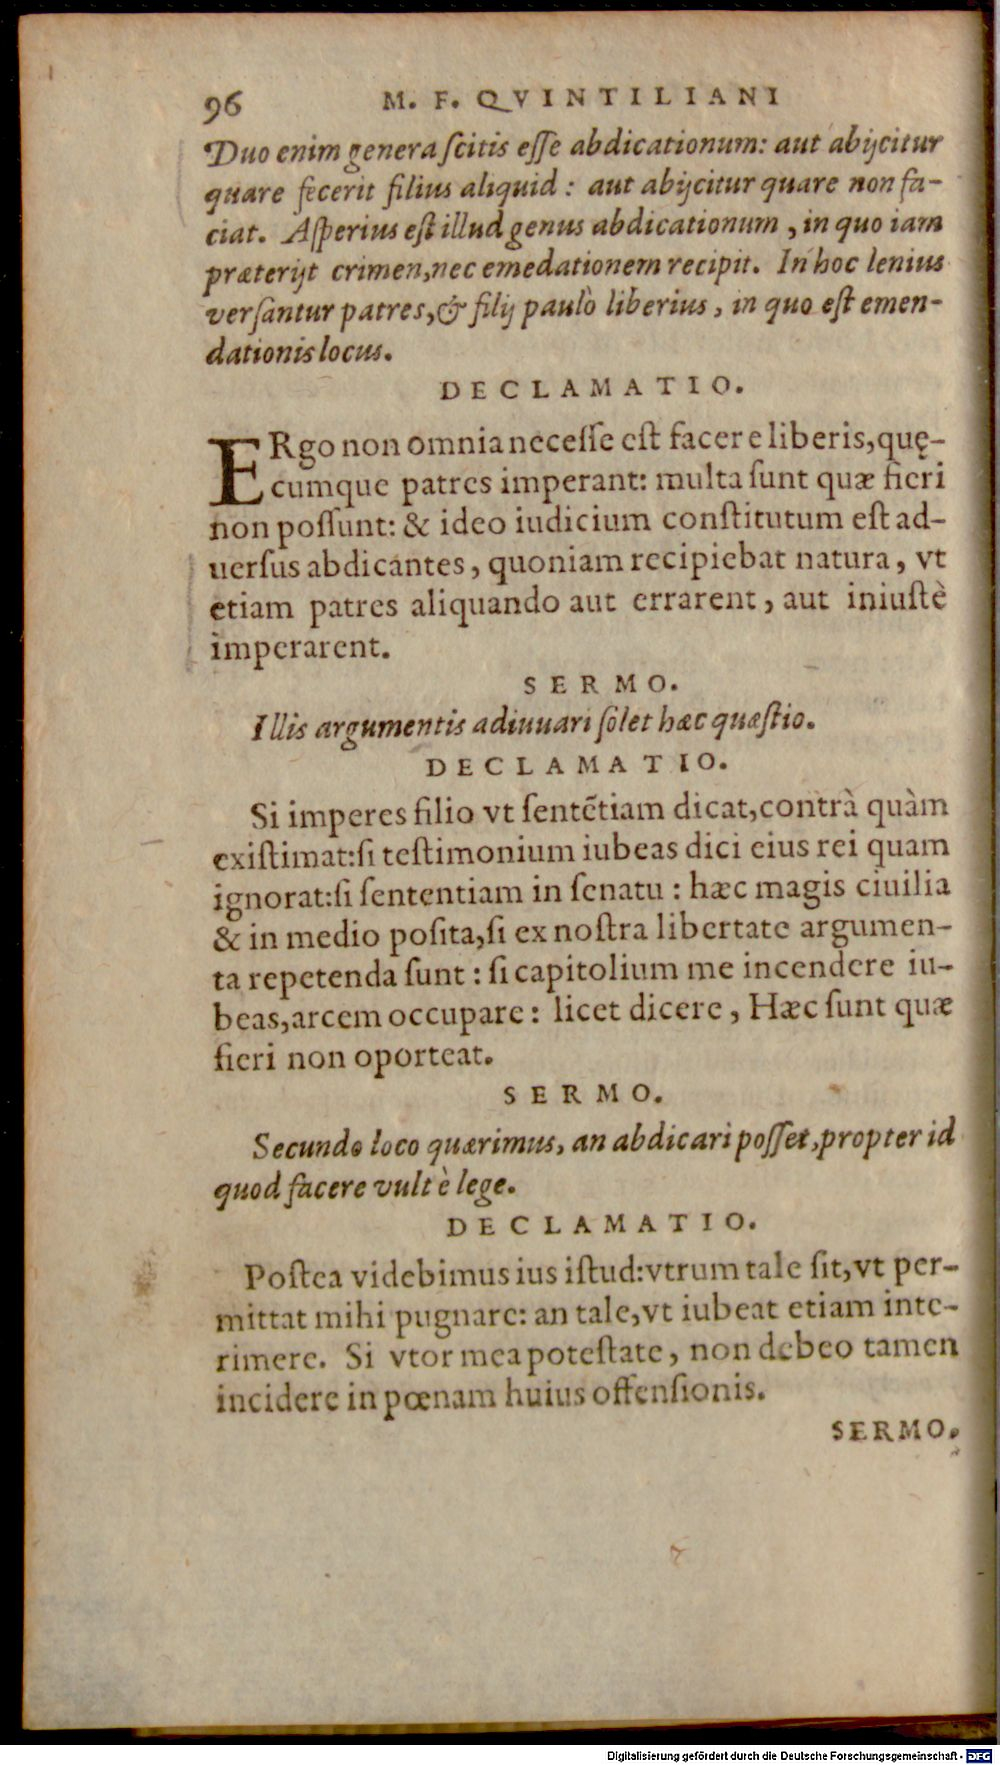 96 M. F. QVINTILIANI
Duo enim genera ſcitis eſſe abdicationum: aut abijcitur
quare fecerit filius aliquid : aut abijcitur quare non fa-
ciat. Aſperius eſt illud genus abdicationum , in quo iam
præterijt crimen,nec emedationem recipit. In hoc lenius
verſantur patres,& filij paulò liberius , in quo eſt emen-
dationis locus.
DECLAMATIO.
ERgo non omnia neceſſe eſt facere liberis,quę-
cumque patres imperant: multa ſunt quæ fieri
non poſſunt: & ideo iudicium conſtitutum eſt ad-
uerſus abdicantes , quoniam recipiebat natura , vt
etiam patres aliquando aut errarent , aut iniuſtè
imperarent.
SERMO.
Illis argumentis adiuuari ſolet hæc quæſtio.
DECLAMATIO.
Si imperes filio vt ſentẽtiam dicat,contrà quàm
exiſtimat:ſi teſtimonium iubeas dici eius rei quam
ignorat:ſi ſententiam in ſenatu : hæc magis ciuilia
& in medio poſita,ſi ex noſtra libertate argumen-
ta repetenda ſunt : ſi capitolium me incendere iu-
beas,arcem occupare : licet dicere , Hæc ſunt quæ
fieri non oporteat.
SERMO.
Secundo loco quærimus, an abdicari poſſet,propter id
quod facere vult è lege.
DECLAMATIO.
Poſtea videbimus ius iſtud:vtrum tale ſit,vt per-
mittat mihi pugnare: an tale,vt iubeat etiam inte-
rimere. Si vtor mea poteſtate , non debeo tamen
incidere in pœnam huius offenſionis.
SERMO.
Digitalisierung gefördert durch die Deutsche Forschungsgemeinschaft - DFG